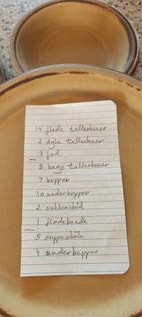 14 flade tallerkener
4 dybe tallerkener
1 fad
8 kage tallerkener
7 kopper
10 underkopper
2 sukkerskål
1 flødekande
5 suppeskåle
4 underkopper